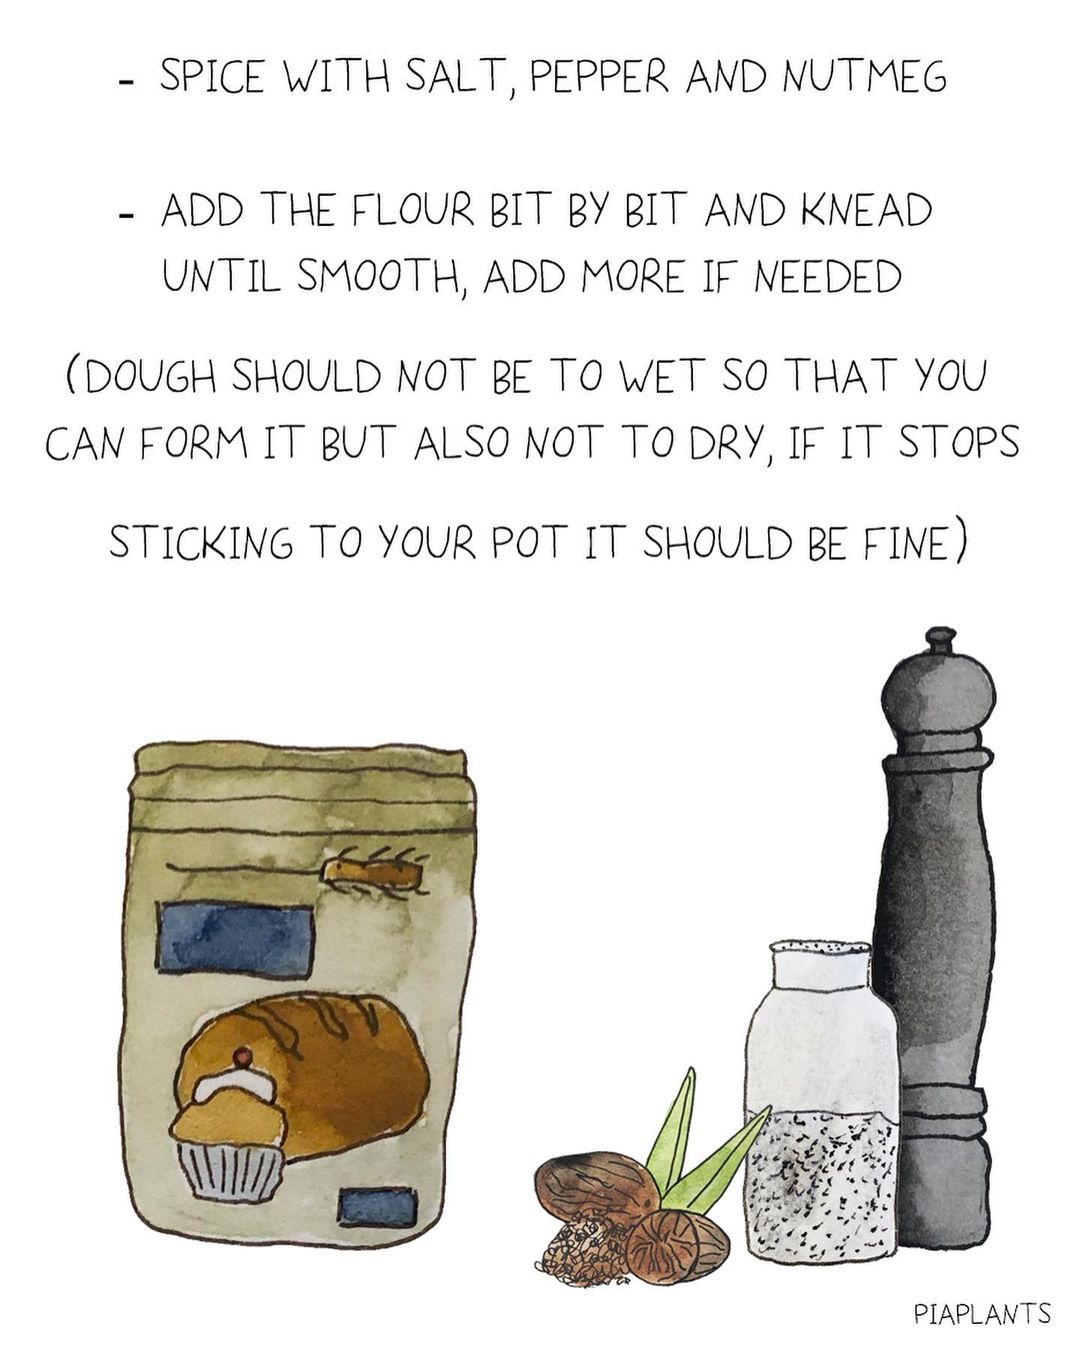 - SPICE WITH SALT, PEPPER AND NUTMEG
- ADD THE FLOUR BIT BY BIT AND KNEAD
UNTIL SMOOTH, ADD MORE IF NEEDED
(DOUGH SHOULD NOT BE TO WET SO THAT YOU
CAN FORM IT BUT ALSO NOT TO DRY, IF IT STOPS
STICKING TO YOUR POT IT SHOULD BE FINE)
PIAPLANTS